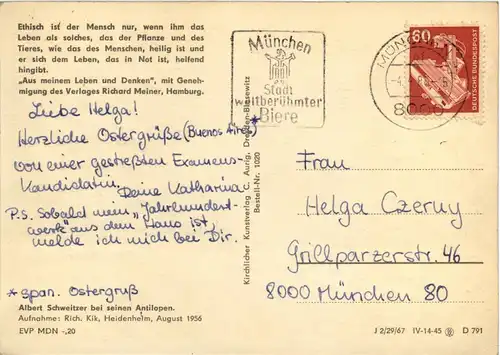 Ethisch ist der Mensch nur, wenn ihm das
Leben als solches, das der Pflanze und des
Tieres, wie das des Menschen, heilig ist und
er sich dem Leben, das in Not ist, helfend
hingibt.
"Aus meinem Leben und Denken", mit Geneh-
migung des Verlages Richard Meiner, Hamburg.
Liebe Helga!
Herzliche Ostergrüße (Buenos Aires)*
von einer gestreßten Examens-
kandidatin, Deine Katharina
P.S. Sobald mein „Jahrhundert-
werk" aus dem Haus ist,
melde ich mich bei Dir.
*span. Ostergruß
Albert Schweitzer bei seinen Antilopen.
Aufnahme: Rich. Kik, Heidenheim, August 1956
EVP MDN -,20
Kirchlicher Kunstverlag C. Aurig, Dresden-Blasewitz
Bestell-Nr. 1020
München
Stadt
weltberühmter
Biere
MÜNCHEN
8000
60
DEUTSCHE BUNDESPOST
Frau
Helga Czerny
Grillparzerstr. 46
8000 München 80
J 2/29/67 IV-14-45 D 791